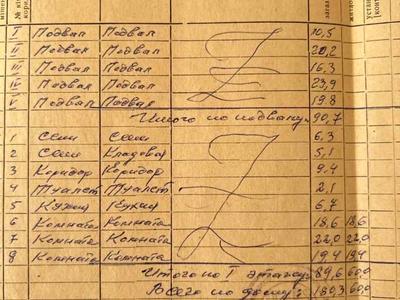 I Подвал Подвал 10,5
II Подвал Подвал 20,2
III Подвал Подвал 16,3
IV Подвал Подвал 23,9
V Подвал Подвал 19.8
Итого по подвалу 90,7
1 Сени Сени 6.3
2 Сени Кладовая 5,1
3 Коридор Коридор 9.4
4 Туалет Туалет 2,1
5 Кухня Кухня 6.7
6 Комната Комната 18,6 18,6
7 Комната Комната 22,0 22,0
8 Комната Комната 19,4 19,4
Итого по I этажу 89,6 60,0
Всего по дому 180,3 60,0